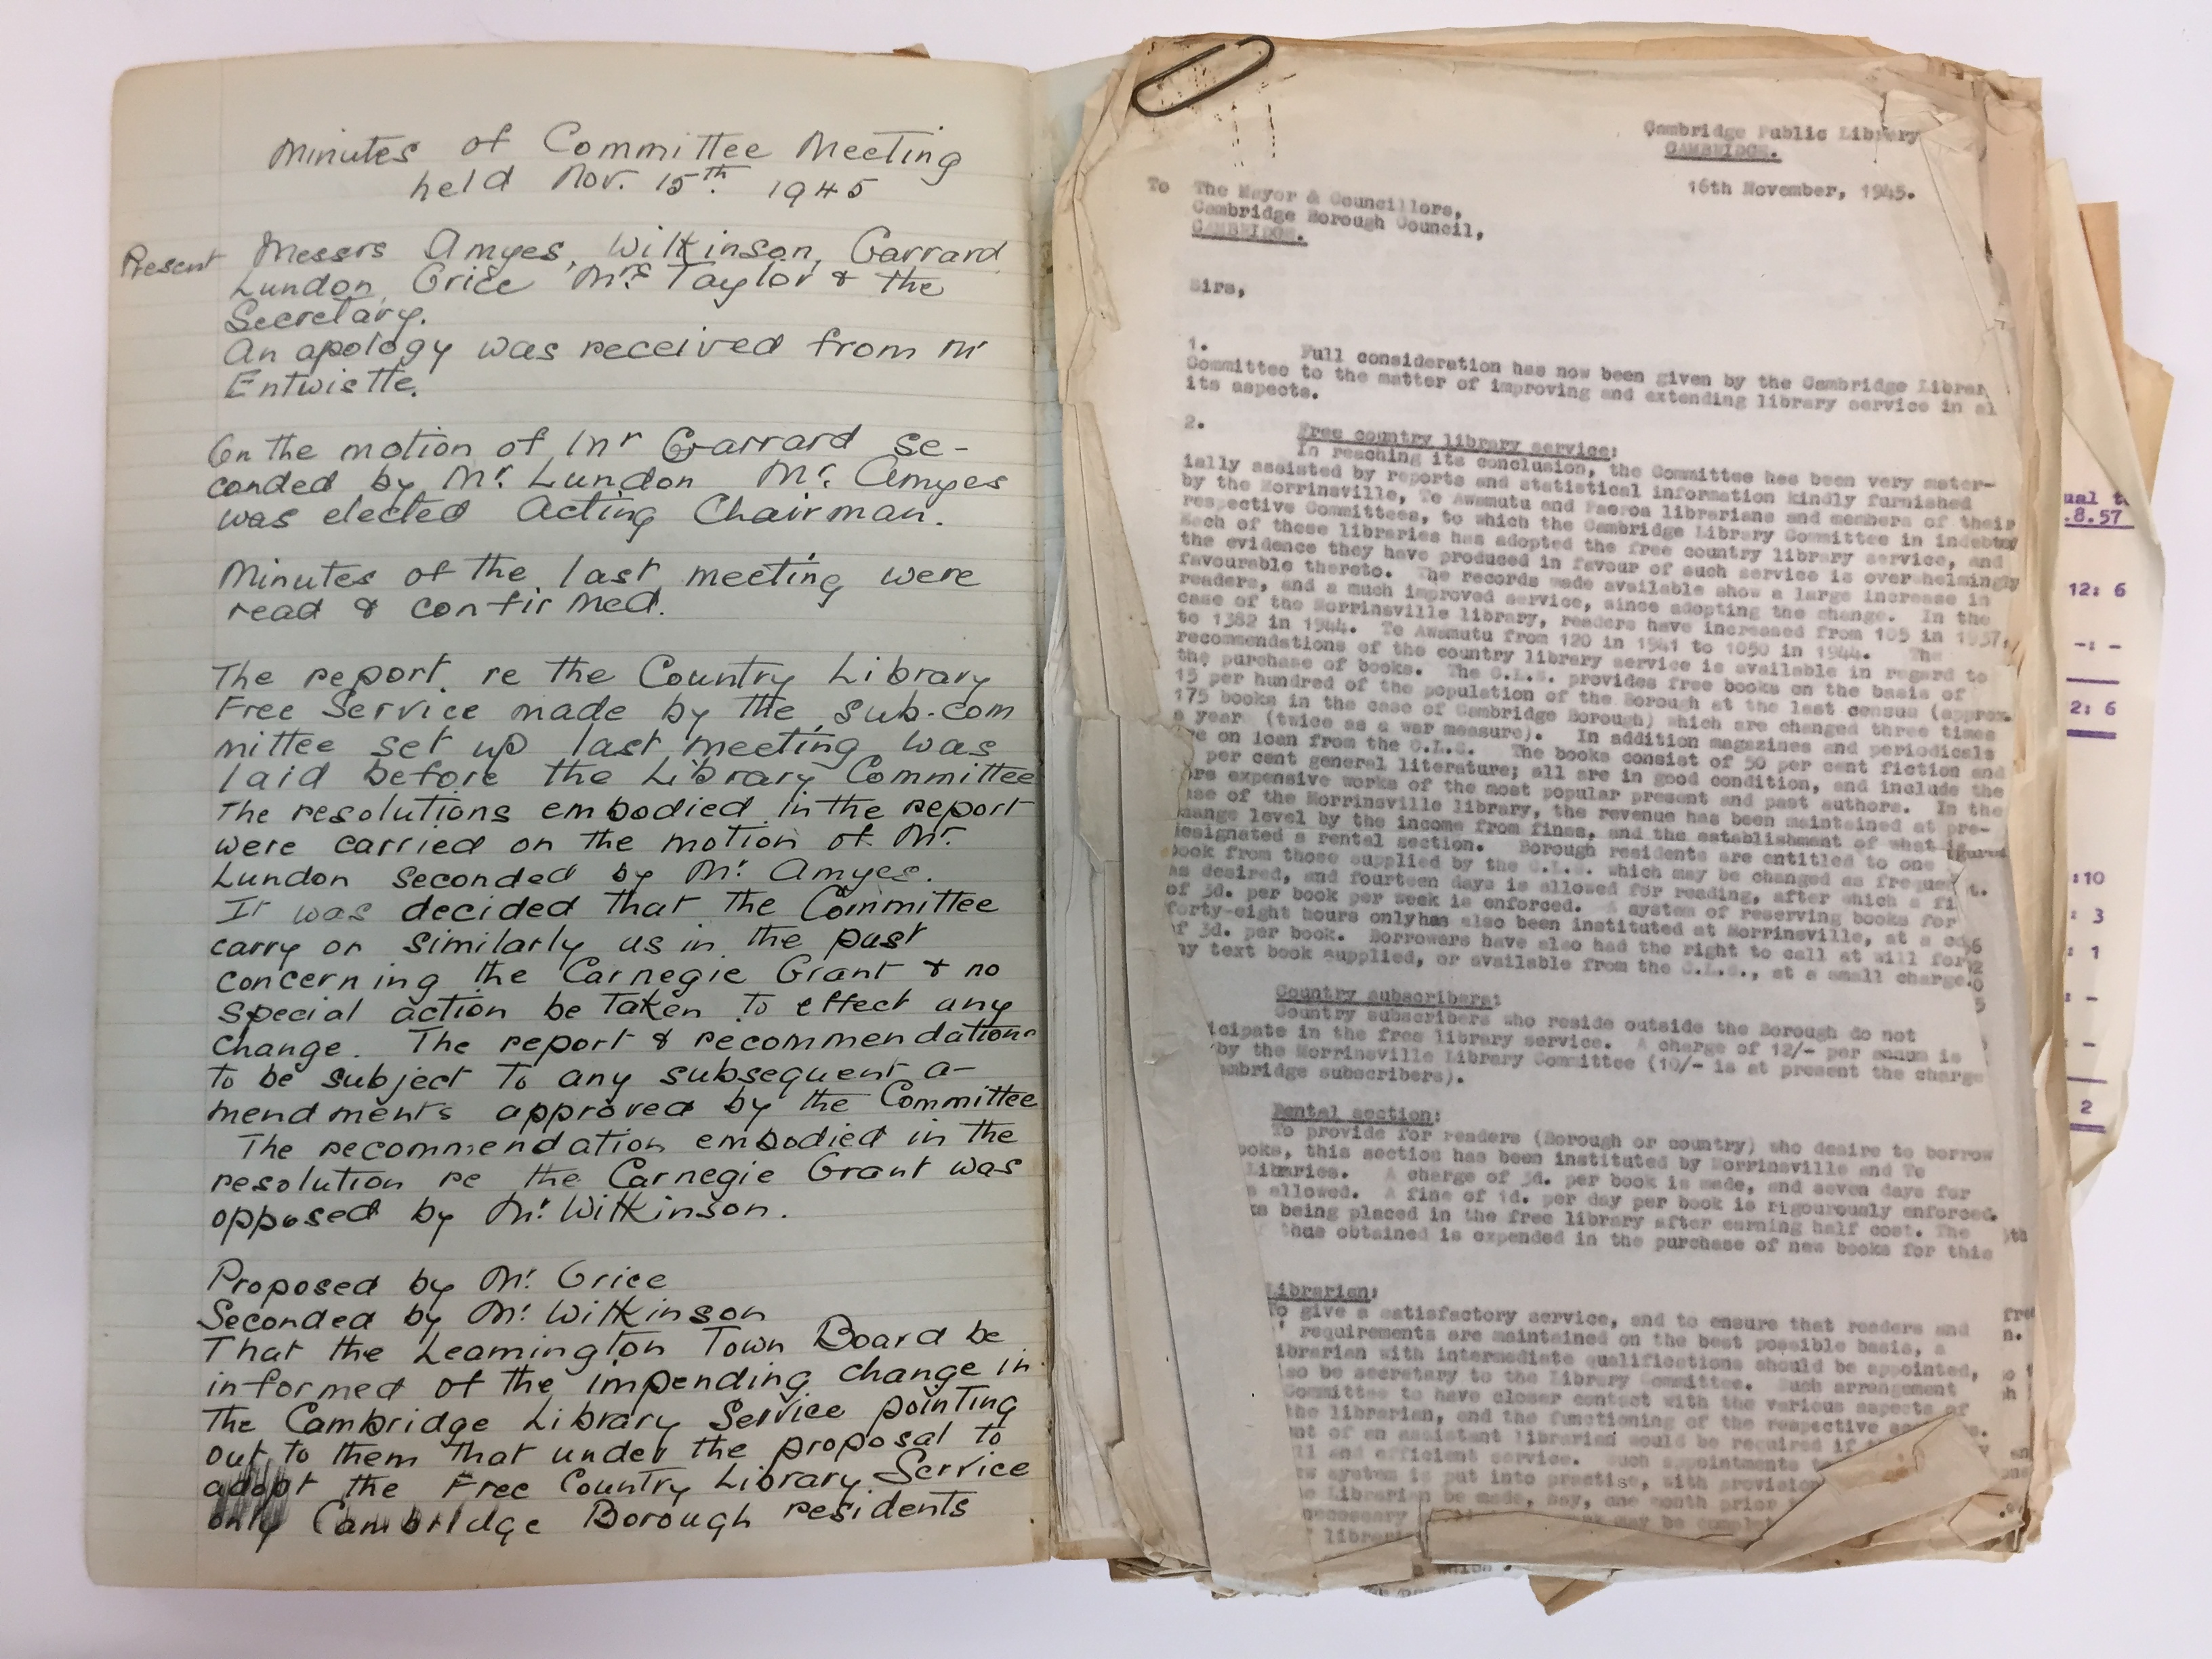 Minutes of Committee Meeting
held Nov. 15th. 1945
Present Messrs Amyes, Wilkinson, Garrard
Lundon, Grice Mrs Taylor & the
Secretary.
An apology was received from Mr
Entwistle.
On the motion of Mr Garrard se-
conded by Mr. Lundon Mr. Amyes
was elected Acting Chairman.
Minutes of the last meeting were
read & confirmed.
The report re the Country Library
Free Service made by the sub-com
mittee set up last meeting was
laid before the Library Committee
The resolutions embodied in the report
were carried on the motion of Mr.
Lundon seconded by Mr. Amyes.
It was decided that the Committee
carry on similarly as in the past
concerning the Carnegie Grant & no
special action be taken to effect any
change. The report & recommendations
to be subject to any subsequent a-
mendments approved by the Committee
The recommendation embodied in the
resolution re the Carnegie Grant was
opposed by Mr. Wilkinson.
Proposed by Mr. Grice
Seconded by Mr. Wilkinson
That the Leamington Town Board be
informed of the impending change in
the Cambridge Library Service pointing
out to them that under the proposal to
adopt the Free Country Library Service
only Cambridge Borough residents
Cambridge Public Library
CAMBRIDGE.
16th November, 1945.
To The Mayor & Councillors,
Cambridge Borough Council,
CAMBRIDGE.
Sirs,
1. Full consideration has now been given by the Cambridge Librar
Committee to the matter of improving and extending library service in al
its aspects.
2. Free country library service:
In reaching its conclusion, the Committee has been very mater-
ially assisted by reports and statistical information kindly furnished
by the Morrinsville, Te Awamutu and Paeroa librarians and members of their
respective Committees, to which the Cambridge Library Committee in indebted
Each of these libraries has adopted the free country library service, and
the evidence they have produced in favour of such service is overwhelmingly
favourable thereto. The records made available show a large increase in
readers, and a much improved service, since adopting the change. In the
case of the Morrinsville library, readers have increased from 105 in 1937,
to 1382 in 1944. Te Awamutu from 120 in 1941 to 1050 in 1944. The
recommendations of the country library service is available in regard to
the purchase of books. The C.L.S. provides free books on the basis of
15 per hundred of the population of the Borough at the last census (approx.
175 books in the case of Cambridge Borough) which are changed three times
a year (twice as a war measure). In addition magazines and periodicals
are on loan from the C.L.S. The books consist of 50 per cent fiction and
per cent general literature; all are in good condition, and include the
ore expensive works of the most popular present and past authors. In the
ase of the Morrinsville library, the revenue has been maintained at pre-
hange level by the income from fines, and the establishment of what is
designated a rental section. Borough residents are entitled to one
book from those supplied by the C.L.S. which may be changed as frequent
as desired, and fourteen days is allowed for reading, after which a fi
of 3d. per book per week is enforced. A system of reserving books for
forty-eight hours only has also been instituted at Morrinsville, at a co
of 3d. per book. Borrowers have also had the right to call at will for
ny text book supplied, or available from the C.L.S., at a small charge.
Country subscribers:
Country subscribers who reside outside the Borough do not
icipate in the free library service. A charge of 12/- per annum is
by the Morrinsville Library Committee (10/- is at present the charge
mbridge subscribers).
Rental section:
To provide for readers (Borough or country) who desire to borrow
ooks, this section has been instituted by Morrinsville and Te
Libraries. A charge of 3d. per book is made, and seven days for
s allowed. A fine of 1d. per day per book is rigourously enforced.
ks being placed in the free library after earning half cost. The
thus obtained is expended in the purchase of new books for this
Librarian:
To give a satisfactory service, and to ensure that readers and
' requirements are maintained on the best possible basis, a
ibrarian with intermediate qualifications should be appointed,
lso be secretary to the Library Committee. Such arrangement
Committee to have closer contact with the various aspects of
the librarian, and the functioning of the respective
nt of an assistant librarian would be required if
ll and efficient service. Such appointments
w system is put into practise, with provision
e Librarian be made, say, one month prior
necessary may be
librar
ual t
.8.57
12: 6
-: -
2: 6
:10
: 3
: 1
: -
: -
2